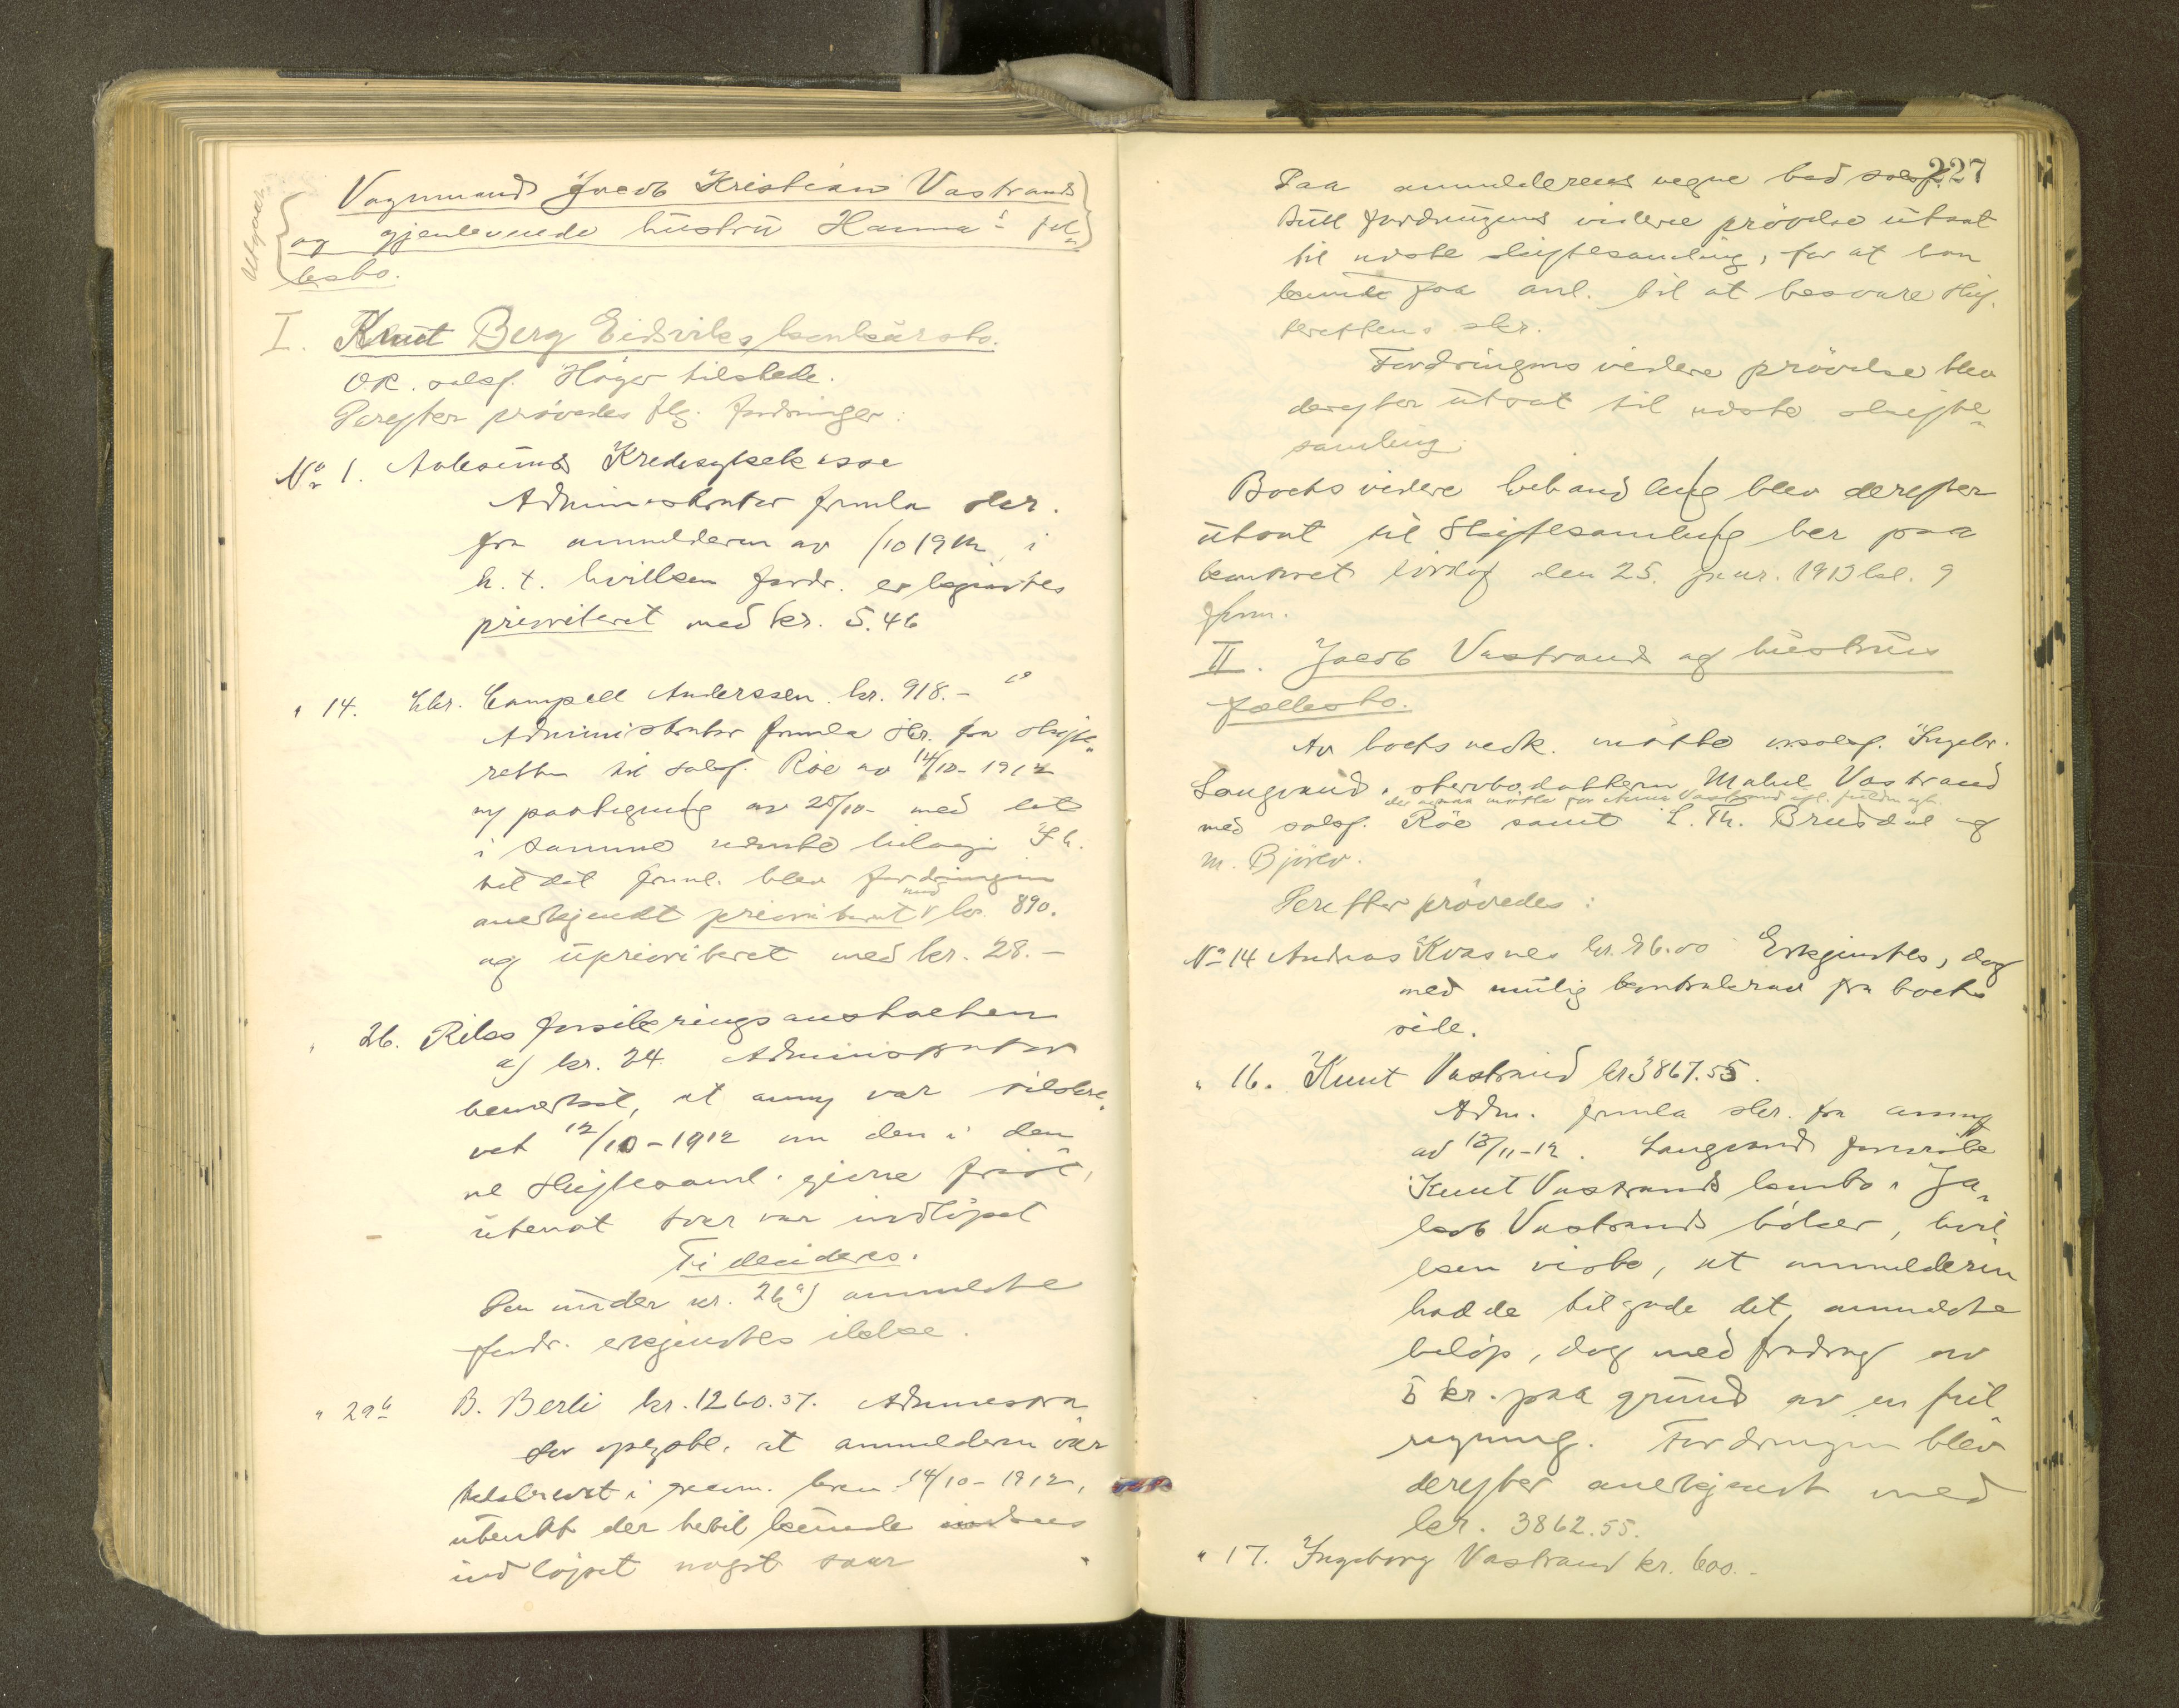 Utgaar
Vognmand Jacob Kristian Vastrands
og gjenlevende hustru Hanna's fæl„
lesbo.
I. Knut Berg Eidsviks konkursbo.
OR. salsf. Høyer tilstede.
Derefter prøvedes flg. fordringer:
No 1. Aalesunds Kredssykekasse
Administrator fremla skr.
fra anmelderen av /10 1912 i
h. t. hvilken fordr. erkjendtes
prioritert med kr. 5.46
" 14. Chr. Campell Anderssen kr. 918.-
Administrator fremla skr. fra skifte„
retten til salsf. Röe av 14/10-1912
ny paategning av 25/10- med et
i samme nævnte bilag. I h.
til det freml. blev fordringen
anerkjendt prioritert med kr. 890.
og uprioritert med kr. 28.-
" 26. Riksforsikringsanstalten
a) kr. 24. Administrator
bemerket, at anm. var tilskre„
vet 12/10-1912 om den i den„
ne skiftesaml. givne frist,
utenat svar var indløpet
Ti decideres.
Den under nr. 26 a) anmeldte
fordr. erkjendtes ikke.
" 29b B. Berli kr. 1260.37. Administra
tor opgav, at anmelderen var
tilskrevet i rekom. brev 14/10-1912,
utenat der hertil kunde
indløpet noget svar
227
Paa anmelderens vegne bad salsf.
Bull fordringens videre prøvelse utsat
til næste skiftesamling, for at han
kunde faa anl. til at besvare skif„
terettens skr.
Fordringens videre prøvelse blev
derefter utsat til næste skifte„
samling.
Boets videre behandling blev derefter
utsat til skiftesamling her paa
kontoret lørdag den 25. januar 1913 kl. 9
form.
II. Jacob Vastrand og hustrus
fællesbo.
Av boets vedk. møtte o.r.salsf. Ingebr.
Langsrud, sterbodatteren Mabel Vastrand
med salsf. Röe samt L. Th. Brusdal og
M. Björlo.
Derefter prøvedes:
No 14 Andreas Kvasnes kr. 26.00 Erkjendtes, dog
med mulig kontrakrav fra boets
side.
" 16. Knut Vastrand kr 3867.55.
Adm. fremla skr. fra anm.
av 13/11-12. Langsrud foreviste
Knut Vastrands konto i Ja„
kob Vastrands bøker, hvil„
ken viste, at anmelderen
hadde tilgode det anmeldte
beløp, dog med fradrag av
5 kr. paa grund av en feil„
regning. Fordringen blev
derefter anerkjendt med
kr. 3862.55.
" 17. Ingeborg Vastrand kr. 600.-